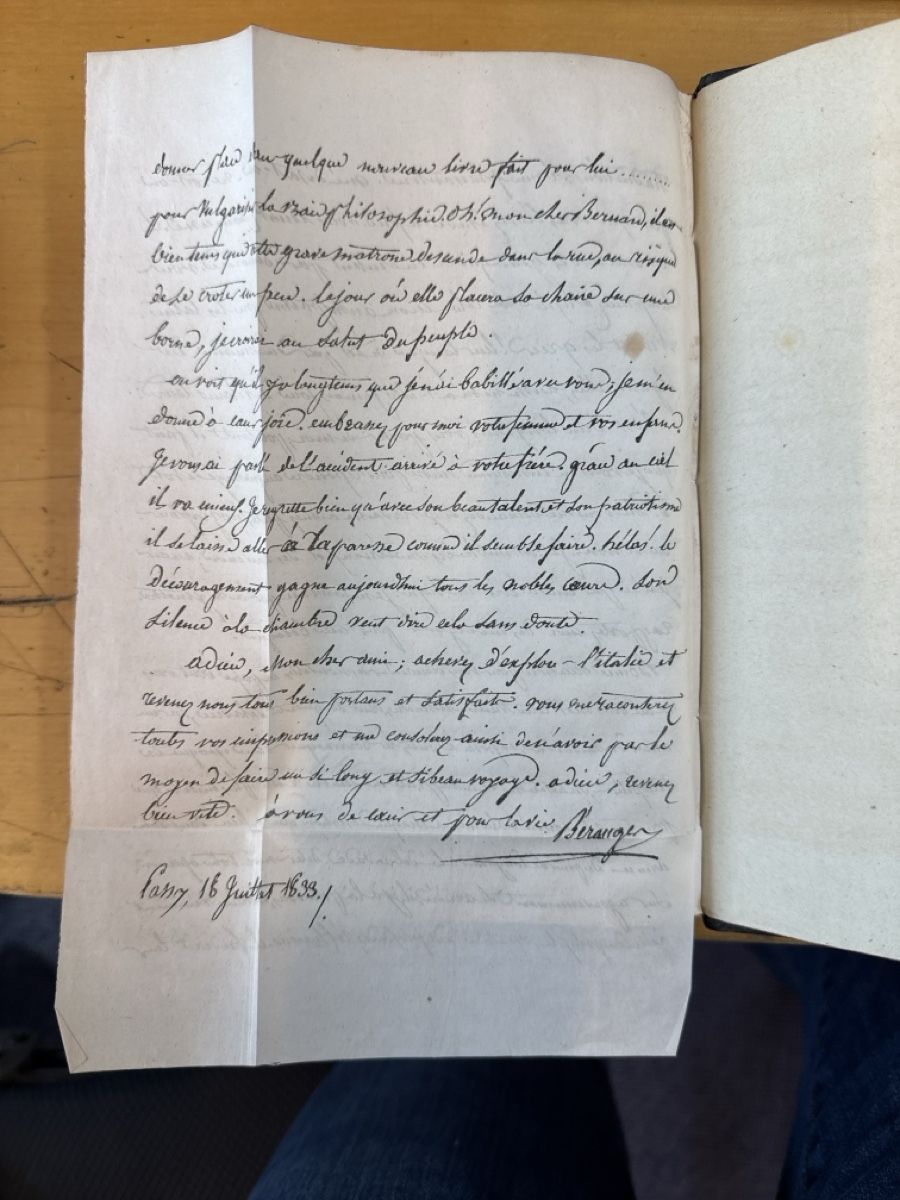 donner place dans quelque nouveau livre fait pour lui.........
pour vulgariser la vraie philosophie. Oh! mon cher Bernard, il est
bien tems que cette grave matrone descende dans la rue, au risque
de se croter un peu. le jour où elle placera sa chaire sur une
borne, je croirai au salut du peuple.
on voit qu'il y a longtems que je n'ai babillé avec vous; je m'en
donne à cœur joie. embrassez pour moi votre femme et vos enfans.
Je vous ai parlé de l'accident arrivé à votre frère. grâce au ciel
il va mieux. Je regrette bien qu'avec son beau talent et son patriotisme
il se laisse aller à la paresse comme il semble faire. hélas! le
découragement gagne aujourdhui tous les nobles cœurs. Son
silence à la chambre veut dire cela sans doute.
adieu, mon cher ami; achevez d'explorer l'italie et
revenez nous tous bien portans et satisfaits. vous me raconterez
toutes vos impressions et me consolerez ainsi de n'avoir pas le
moyen de faire un si long et si beau voyage. adieu; revenez
bien vite. à vous de cœur et pour la vie Béranger
Passy, 18 Juillet 1833./